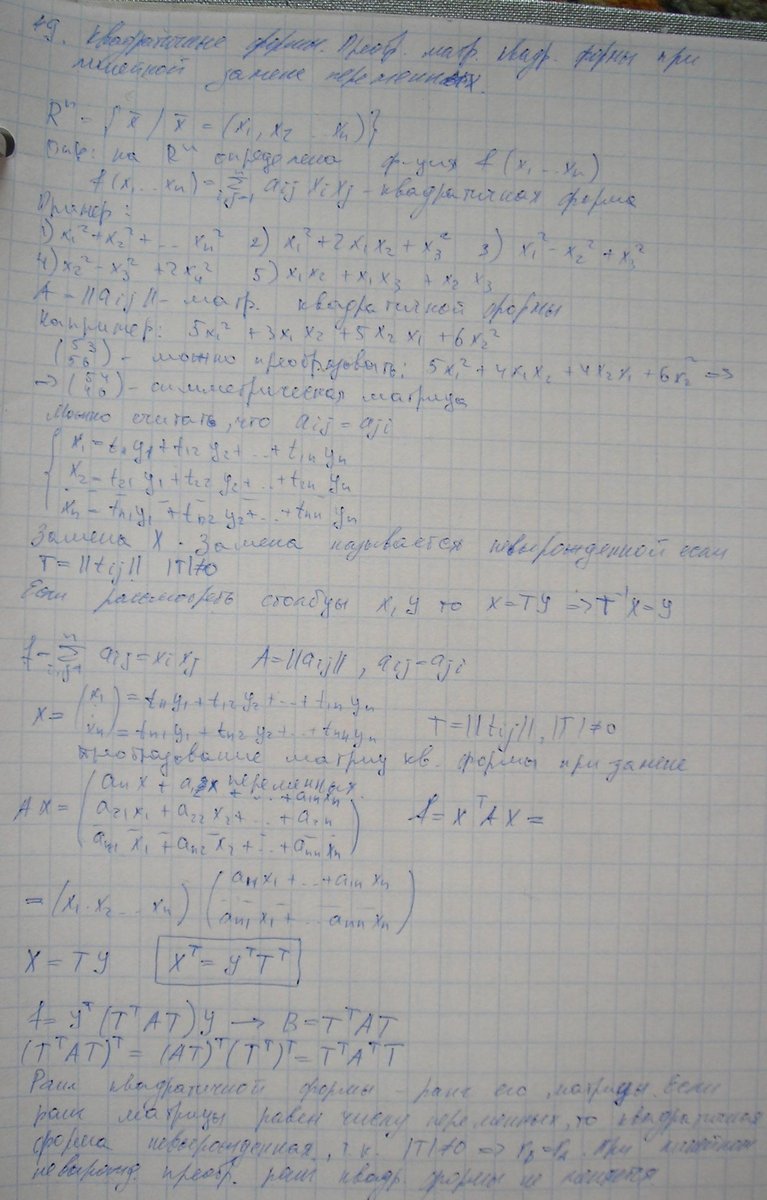 49. Квадратичные формы. Преобр. матр. квадр. формы при
линейной замене переменных.
Rⁿ = { x̄ / x̄ = (x₁, x₂ ... xₙ)}
Опр: на Rⁿ определена ф-ция f(x₁...xₙ)
f(x₁...xₙ) = ∑ⁿᵢ,ⱼ₌₁ aij xi xj - квадратичная форма
Пример:
1) x₁² + x₂² + ... xₙ² 2) x₁² + 2x₁x₂ + x₃² 3) x₁² - x₂² + x₃²
4) x₂² - x₃² + 2x₄² 5) x₁x₂ + x₁x₃ + x₂x₃
A = ||aij|| - матр. квадратичной формы
Например: 5x₁² + 3x₁x₂ + 5x₂x₁ + 6x₂²
(5 3 / 5 6) - можно преобразовать: 5x₁² + 4x₁x₂ + 4x₂x₁ + 6x₂² =>
=> (5 4 / 4 6) - симметрическая матрица
Можно считать, что aij = aji
x₁ = t₁₁y₁ + t₁₂y₂ + ... + t₁ₙyₙ
x₂ = t₂₁y₁ + t₂₂y₂ + ... + t₂ₙyₙ
xₙ = tₙ₁y₁ + tₙ₂y₂ + ... + tₙₙyₙ
Замена X. Замена называется невырожденной если
T = ||tij|| |T| ≠ 0
Если рассмотреть столбцы x, y то X = TY => T⁻¹X = Y
f = ∑ⁿᵢ,ⱼ₌₁ aij = xi xj A = ||aij||, aij = aji
X = (x₁) = t₁₁y₁ + t₁₂y₂ + ... + t₁ₙyₙ
(xₙ) = tₙ₁y₁ + tₙ₂y₂ + ... + tₙₙyₙ T = ||tij||, |T| ≠ 0
Преобразование матриц кв. формы при замене
переменных.
a₁₁x + a₁₂x + ... + a₁ₙxₙ
AX = (a₂₁x₁ + a₂₂x₂ + ... + a₂ₙ) f = XᵀAX =
aₙ₁x₁ + aₙ₂x₂ + ... + aₙₙxₙ
= (x₁ · x₂ ... xₙ) (a₁₁x₁ + ... + a₁ₙxₙ
aₙ₁x₁ + ... aₙₙxₙ)
X = TY Xᵀ = YᵀTᵀ
f = Yᵀ(TᵀAT)Y → B = TᵀAT
(TᵀAT)ᵀ = (AT)ᵀ(Tᵀ)ᵀ = TᵀAᵀT
Ранг квадратичной формы - ранг его матрицы. Если
ранг матрицы равен числу переменных, то квадратичная
форма невырожденная, т.к. |T| ≠ 0 => При линейном
невырожд. преобр. ранг квадр. формы не